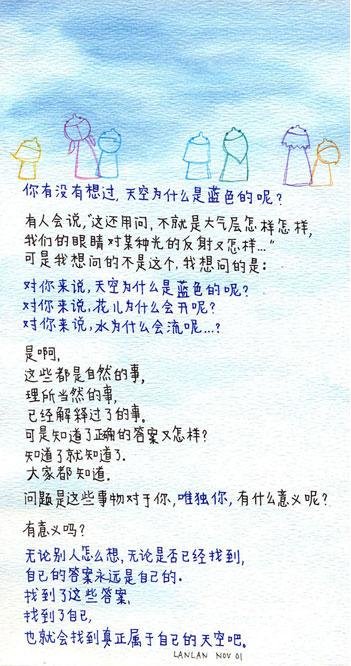 你有没有想过,天空为什么是蓝色的呢?
有人会说,"这还用问,不就是大气层怎样怎样,
我们的眼睛对某种光的反射又怎样…"
可是我想问的不是这个,我想问的是:
对你来说,天空为什么是蓝色的呢?
对你来说,花儿为什么会开呢?
对你来说,水为什么会流呢…?
是啊,
这些都是自然的事,
理所当然的事,
已经解释过了的事.
可是知道了正确的答案又怎样?
知道了就知道了.
大家都知道.
问题是这些事物对于你,唯独你,有什么意义呢?
有意义吗?
无论别人怎么想,无论是否已经找到,
自己的答案永远是自己的.
找到了这些答案,
找到了自己,
也就会找到真正属于自己的天空吧.
LANLAN NOV 01